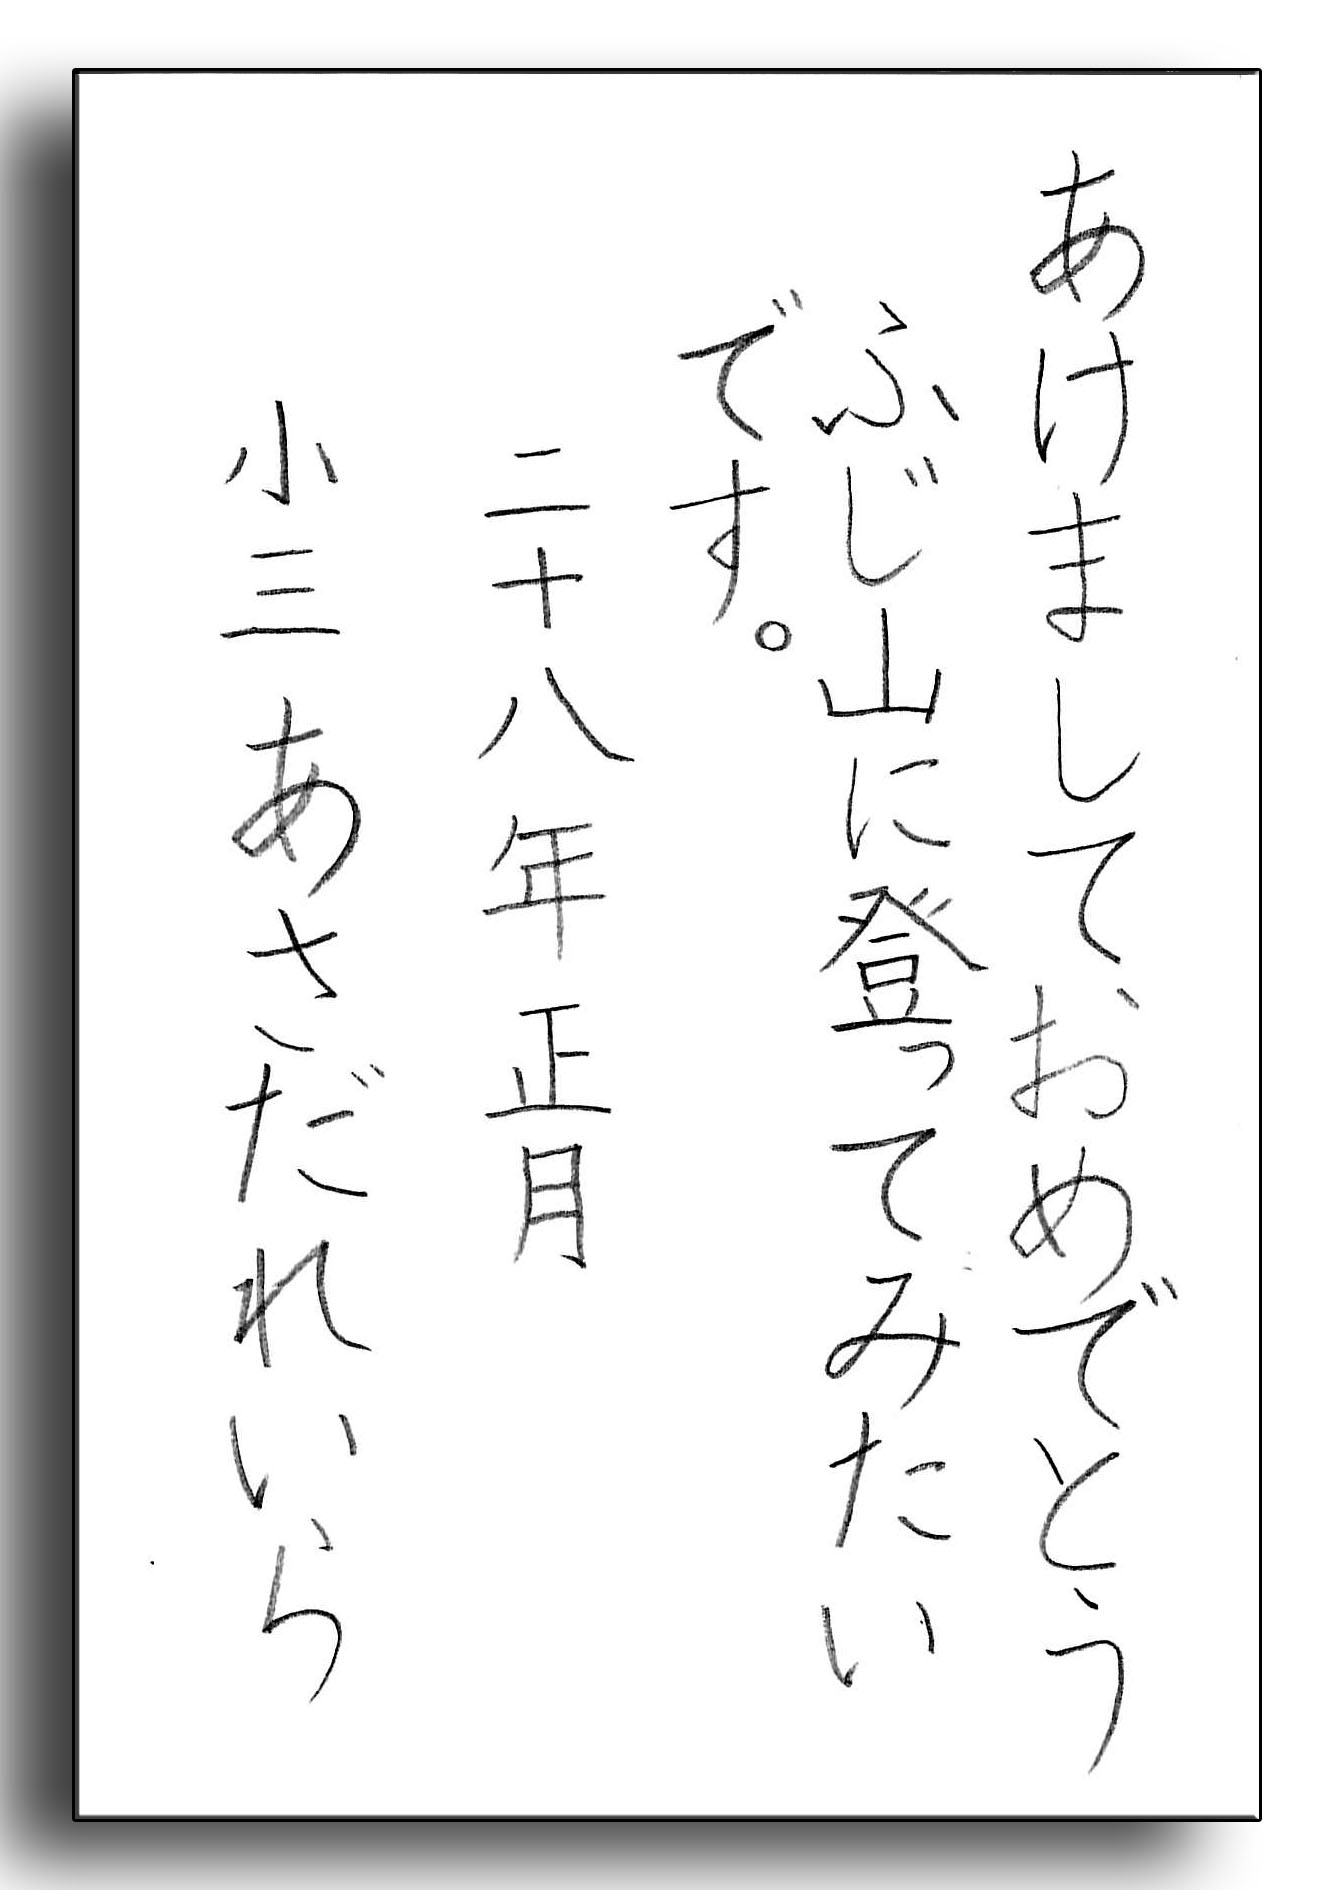 あけまして、おめでとう
ふじ山に登ってみたい
です。
二十八年正月
小三 あさだれいら